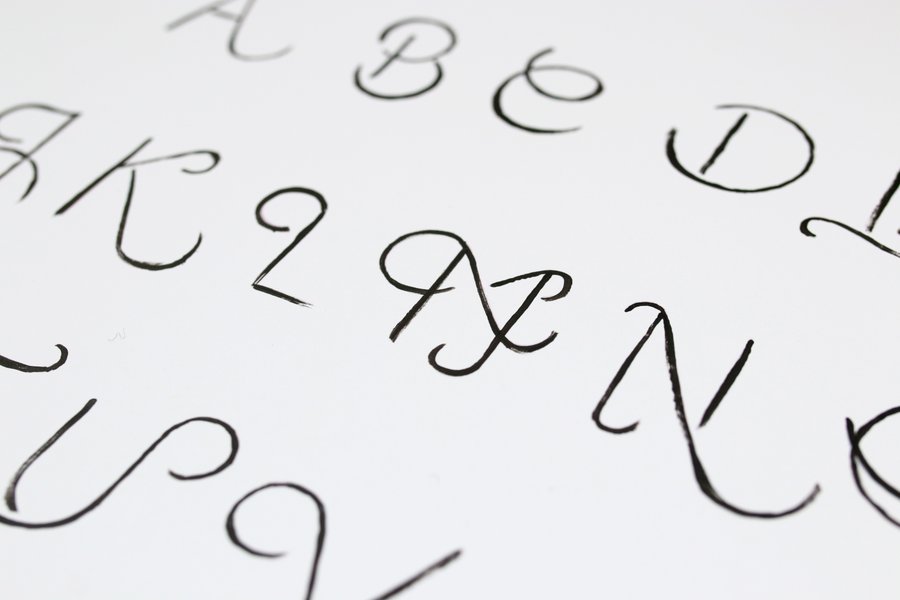 A B C D
J K L M N
U V